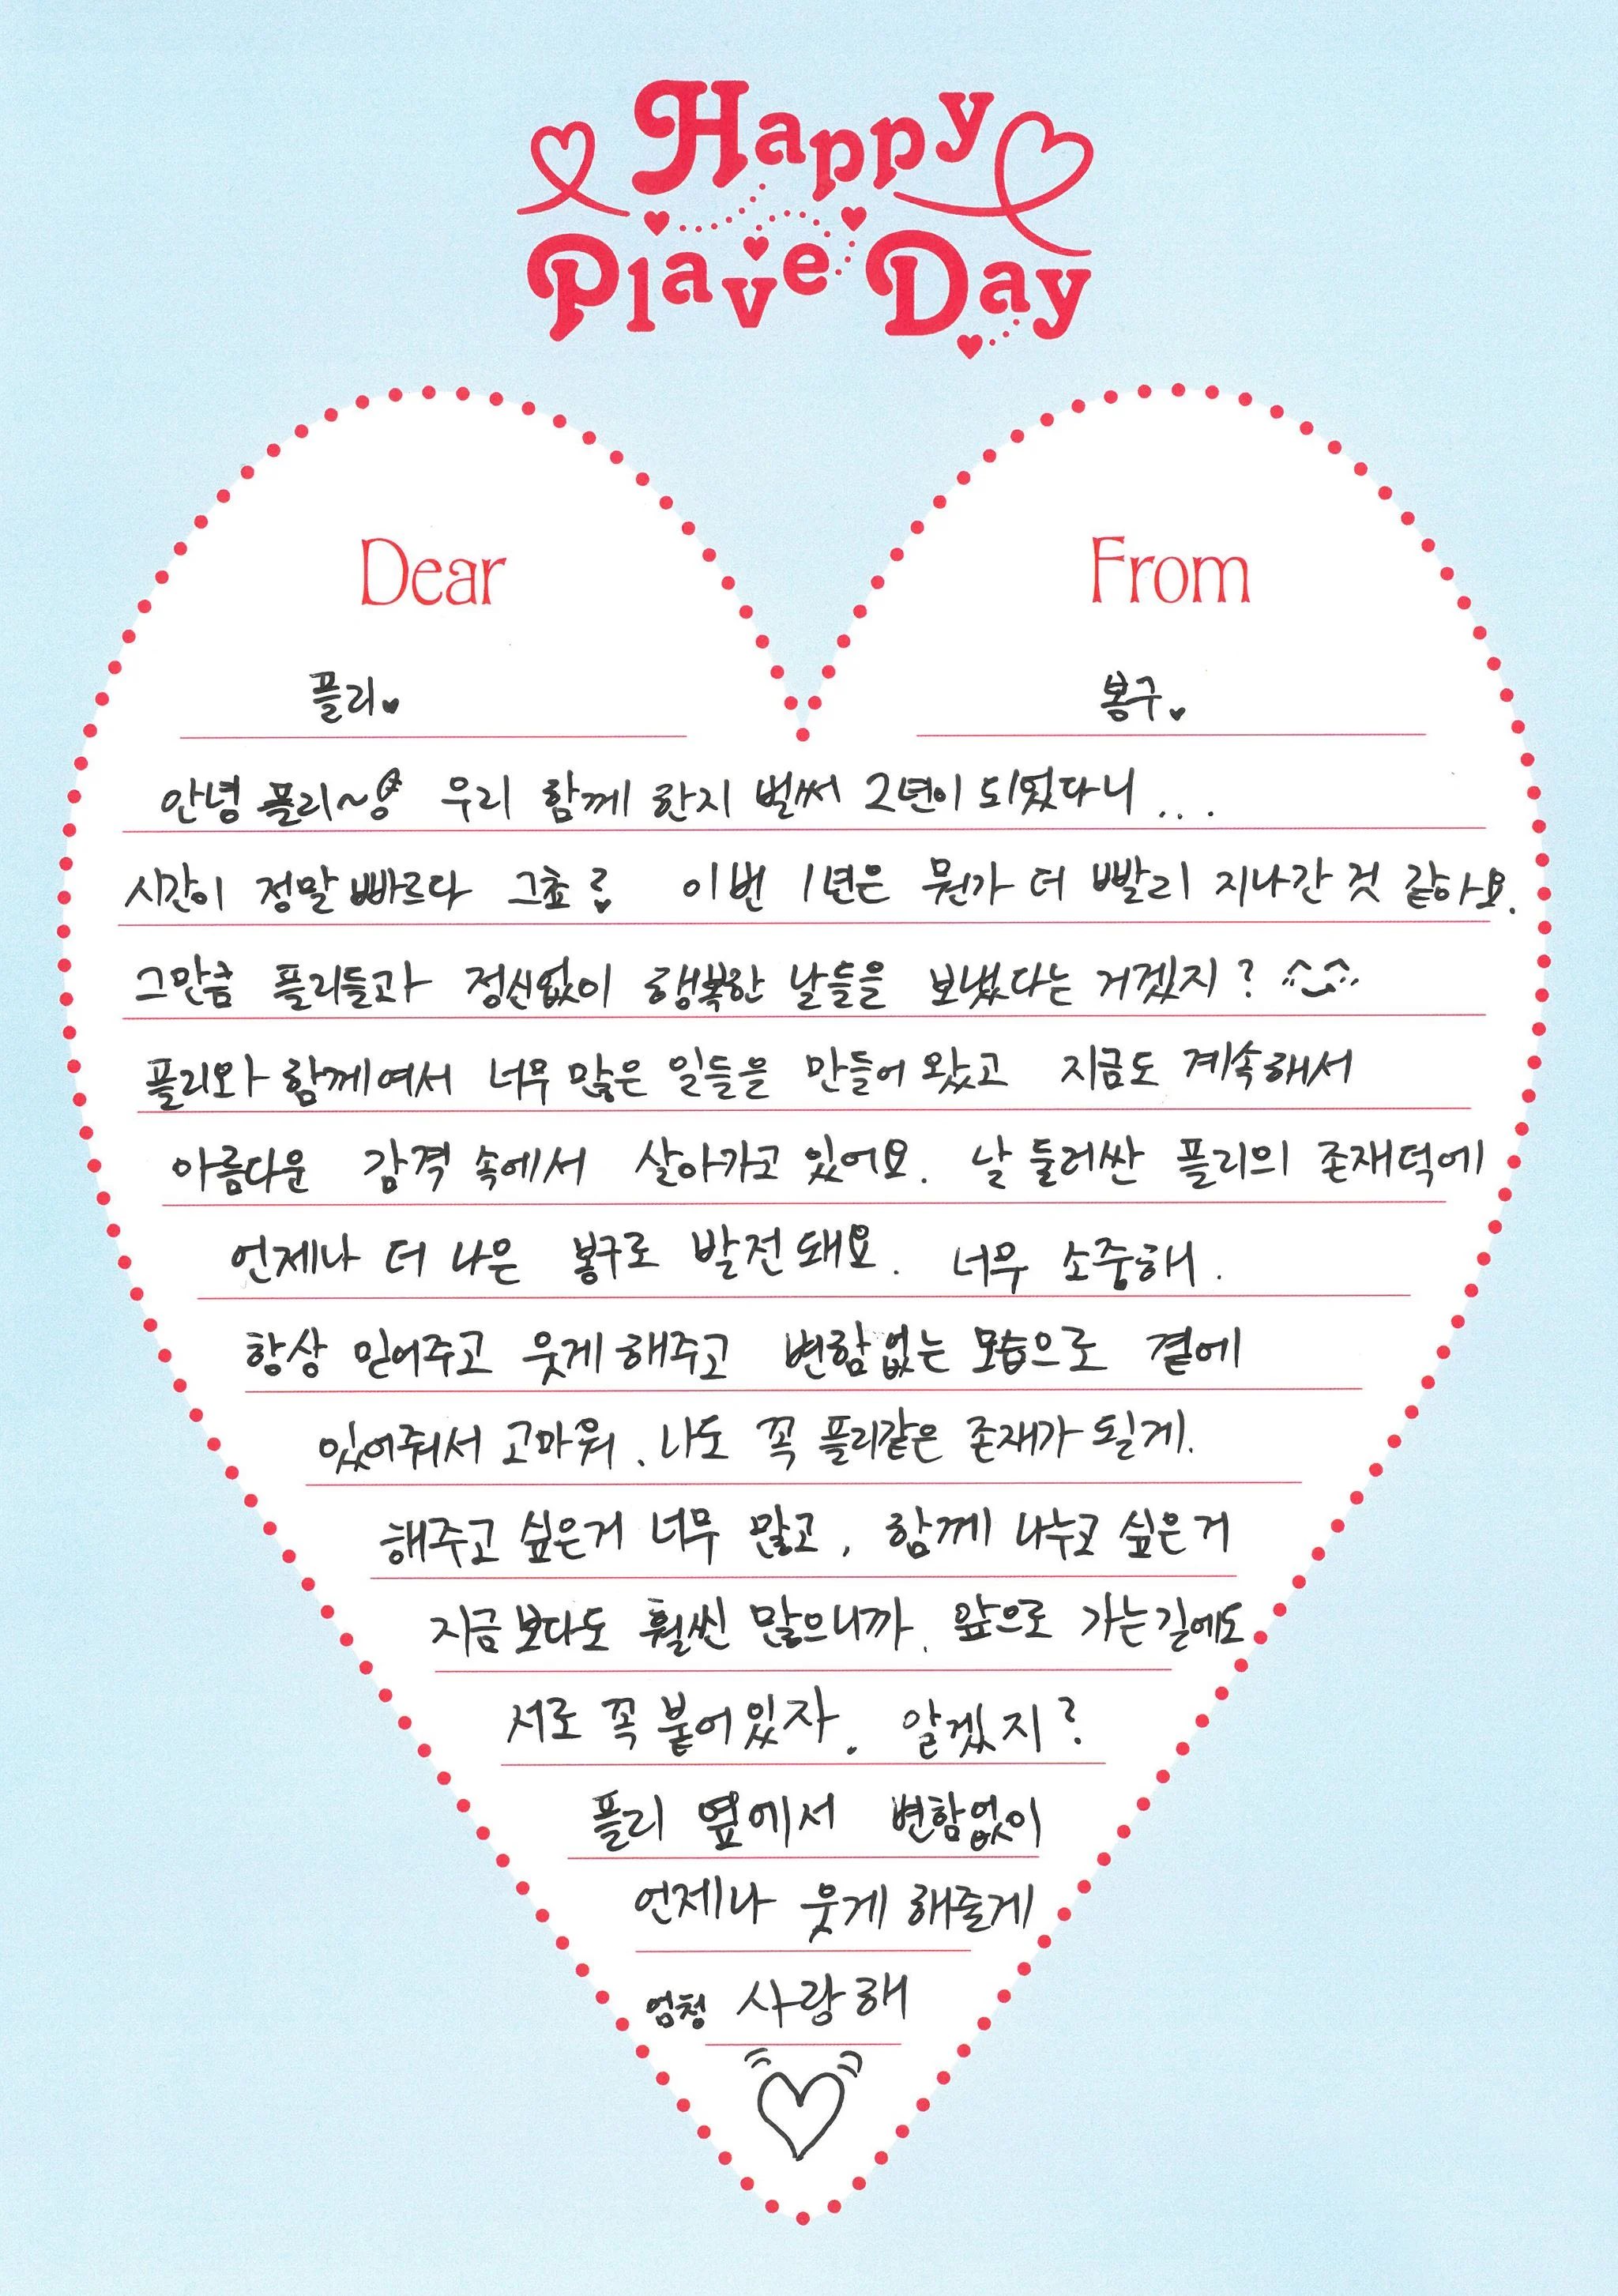 Happy
Plave Day
Dear
From
플리♥
봉구♥
안녕 플리~ 우리 함께 한지 벌써 2년이 되었다니...
시간이 정말 빠르다 그쵸? 이번 1년은 뭔가 더 빨리 지나간 것 같아요.
그만큼 플리들과 정신없이 행복한 날들을 보냈다는 거겠지? ^^
플리와 함께여서 너무 많은 일들을 만들어 왔고 지금도 계속해서
아름다운 감격 속에서 살아가고 있어요. 날 둘러싼 플리의 존재덕에
언제나 더 나은 봉구로 발전돼요. 너무 소중해.
항상 믿어주고 웃게 해주고 변함없는 모습으로 곁에
있어줘서 고마워. 나도 꼭 플리같은 존재가 되길게.
해주고 싶은거 너무 많고, 함께 나누고 싶은거
지금보다도 훨씬 많으니까. 앞으로 가는길에도
서로 꼭 붙어있자. 알겠지?
플리 옆에서 변함없이
언제나 웃게 해줄게
엄청 사랑해
♡